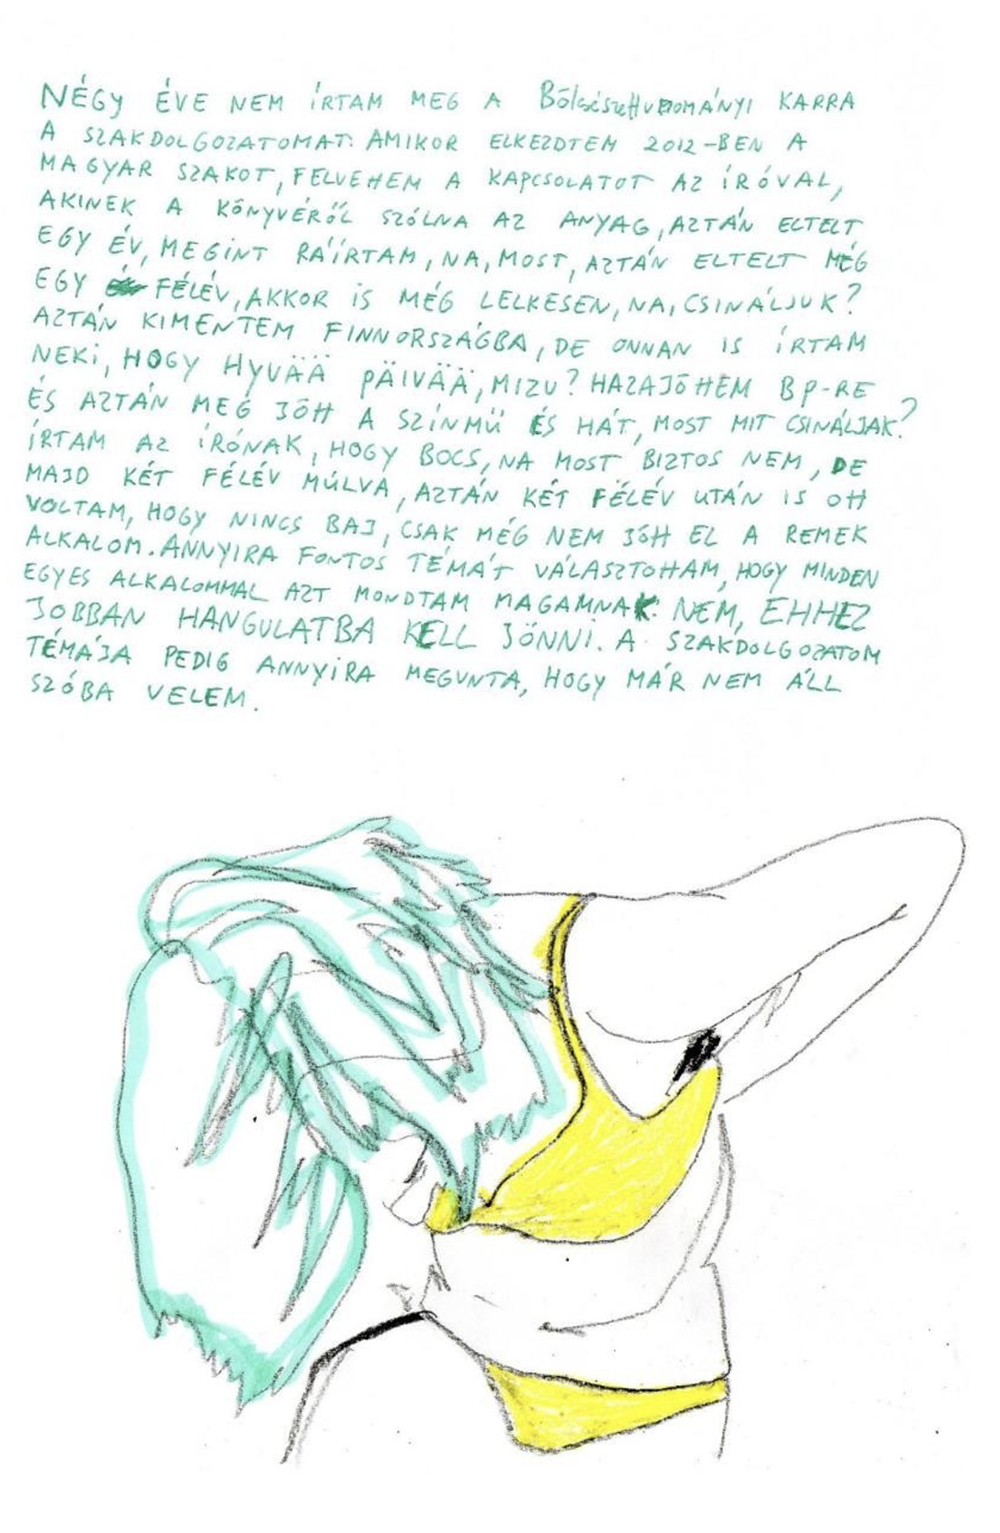 NÉGY ÉVE NEM ÍRTAM MEG A Bölcsészettudományi KARRA
A SZAKDOLGOZATOMAT. AMIKOR ELKEZDTEM 2012-BEN A
MAGYAR SZAKOT, FELVETTEM A KAPCSOLATOT AZ ÍRÓVAL,
AKINEK A KÖNYVÉRŐL SZÓLNA AZ ANYAG, AZTÁN ELTELT
EGY ÉV, MEGINT RÁÍRTAM, NA, MOST, AZTÁN ELTELT MÉG
EGY FÉLÉV, AKKOR IS MÉG LELKESEN, NA, CSINÁLJUK?
AZTÁN KIMENTEM FINNORSZÁGBA, DE ONNAN IS ÍRTAM
NEKI, HOGY HYVÄÄ PÄIVÄÄ, MIZU? HAZAJÖTTEM BP-RE
ÉS AZTÁN MEG JÖTT A SZÍNMŰ ÉS HÁT, MOST MIT CSINÁLJAK?
ÍRTAM AZ ÍRÓNAK, HOGY BOCS, NA MOST BIZTOS NEM, DE
MAJD KÉT FÉLÉV MÚLVA, AZTÁN KÉT FÉLÉV UTÁN IS OTT
VOLTAM, HOGY NINCS BAJ, CSAK MÉG NEM JÖTT EL A REMEK
ALKALOM. ANNYIRA FONTOS TÉMÁT VÁLASZTOTTAM, HOGY MINDEN
EGYES ALKALOMMAL AZT MONDTAM MAGAMNAK: NEM, EHHEZ
JOBBAN HANGULATBA KELL JÖNNI. A SZAKDOLGOZATOM
TÉMÁJA PEDIG ANNYIRA MEGUNTA, HOGY MÁR NEM ÁLL
SZÓBA VELEM.